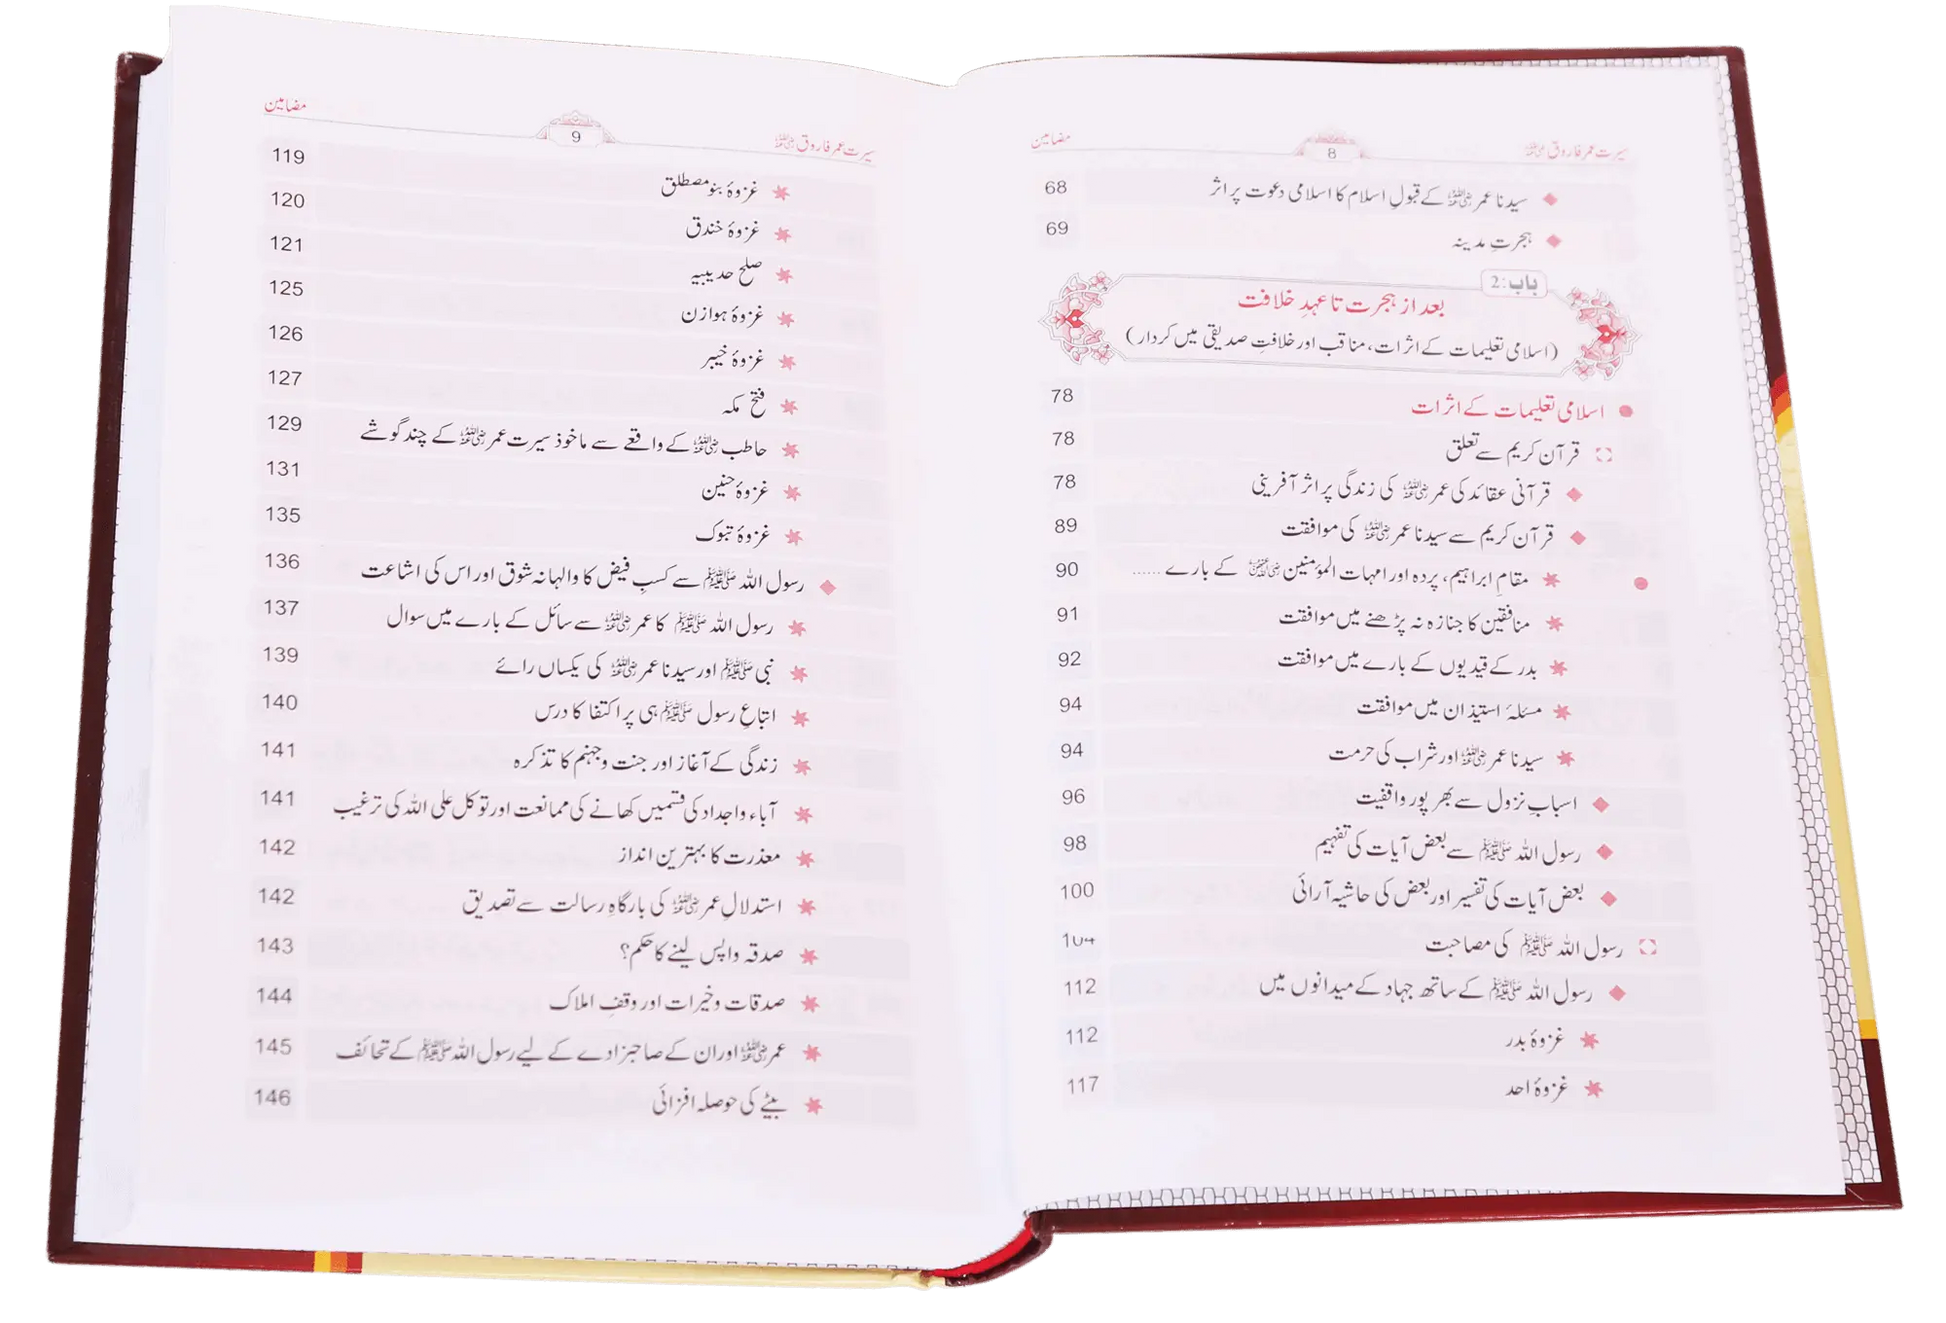 سیرت عمر فاروق ؓ 8 مضامین
سیدنا عمر ؓ کے قبولِ اسلام کا اسلامی دعوت پر اثر 68
ہجرتِ مدینہ 69
باب: 2
بعد از ہجرت تا عہدِ خلافت
(اسلامی تعلیمات کے اثرات، مناقب اور خلافتِ صدیقی میں کردار)
اسلامی تعلیمات کے اثرات 78
قرآن کریم سے تعلق 78
قرآنی عقائد کی عمر ؓ کی زندگی پر اثر آفرینی 78
قرآن کریم سے سیدنا عمر ؓ کی موافقت 89
مقامِ ابراہیم، پردہ اور امہات المؤمنین ؓ کے بارے ...... 90
منافقین کا جنازہ نہ پڑھنے میں موافقت 91
بدر کے قیدیوں کے بارے میں موافقت 92
مسئلۂ استیذان میں موافقت 94
سیدنا عمر ؓ اور شراب کی حرمت 94
اسبابِ نزول سے بھرپور واقفیت 96
رسول اللہ ﷺ سے بعض آیات کی تفہیم 98
بعض آیات کی تفسیر اور بعض کی حاشیہ آرائی 100
رسول اللہ ﷺ کی مصاحبت 104
رسول اللہ ﷺ کے ساتھ جہاد کے میدانوں میں 112
غزوۂ بدر 112
غزوۂ احد 117
سیرت عمر فاروق ؓ 9 مضامین
غزوۂ بنو مصطلق 119
غزوۂ خندق 120
صلح حدیبیہ 121
غزوۂ ہوازن 125
غزوۂ خیبر 126
فتح مکہ 127
حاطب ؓ کے واقعے سے ماخوذ سیرت عمر ؓ کے چند گوشے 129
غزوۂ حنین 131
غزوۂ تبوک 135
رسول اللہ ﷺ سے کسبِ فیض کا والہانہ شوق اور اس کی اشاعت 136
رسول اللہ ﷺ کا عمر ؓ سے سائل کے بارے میں سوال 137
نبی ﷺ اور سیدنا عمر ؓ کی یکساں رائے 139
اتباعِ رسول ﷺ ہی پر اکتفا کا درس 140
زندگی کے آغاز اور جنت و جہنم کا تذکرہ 141
آباء و اجداد کی قسمیں کھانے کی ممانعت اور توکل علی اللہ کی ترغیب 141
معذرت کا بہترین انداز 142
استدلالِ عمر ؓ کی بارگاہِ رسالت سے تصدیق 142
صدقہ واپس لینے کا حکم؟ 143
صدقات و خیرات اور وقفِ املاک 144
عمر ؓ اور ان کے صاحبزادے کے لیے رسول اللہ ﷺ کے تحائف 145
بیٹے کی حوصلہ افزائی 146